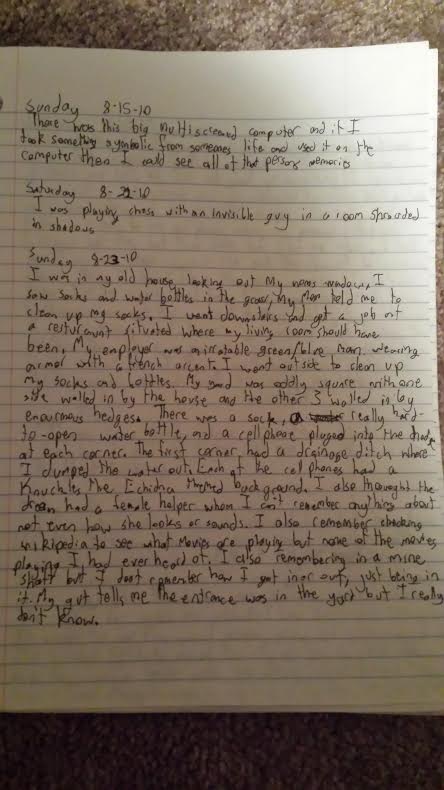 Sunday 8-15-10
There was this big multiscreened computer and if I
took something symbolic from someones life and used it on the
computer then I could see all of that persons memories
Saturday 8-22-10
I was playing chess with an invisible guy in a room shrouded
in shadows
Sunday 8-23-10
I was in my old house looking out my moms window. I
saw socks and water bottles in the grass, my Mom told me to
clean up my socks. I went downstairs and got a job at
a resturaunt situated where my living room should have
been. My employer was an irratable green/blue man wearing
armor with a french accent. I went outside to clean up
my socks and bottles. My yard was oddly square with one
side walled in by the house and the other 3 walled in by
enourmous hedges. There was a sock, a really hard-
to-open water bottle, and a cellphone pluged into the
at each corner. The first corner had a drainage ditch where
I dumped the water out. Each of the cell phones had a
Knuckles the Echidna themed background. I also thought the
dream had a female helper whom I can't remember anything about
not even how she looks or sounds. I also remember checking
wikipedia to see what movies are playing but none of the movies
playing I had ever heard of. I also remembering in a mine
shaft but I dont remember how I got in or out, just being in
it. My gut tells me the entrance was in the yard but I really
don't know.